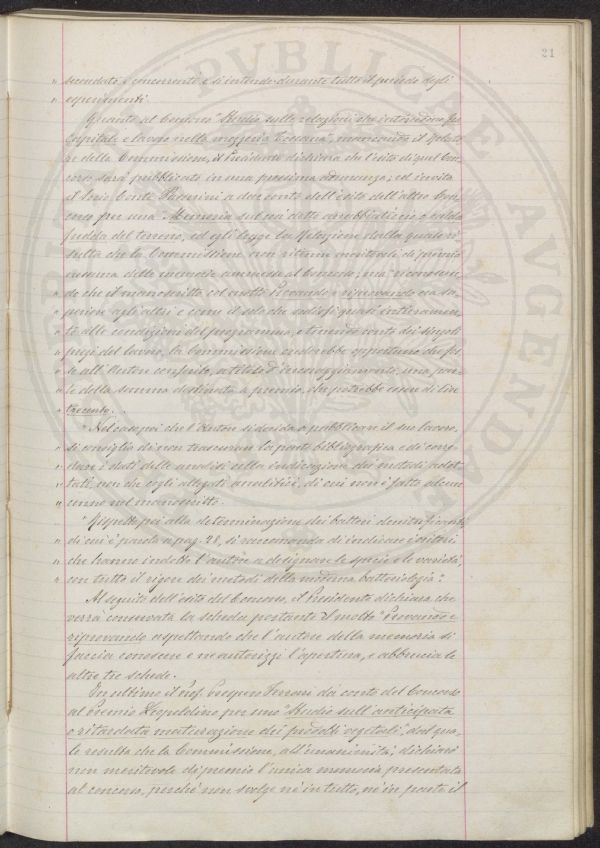 21
" secondato, concorrente, e si intende durante tutto il periodo degli
" esperimenti.
Quanto al Concorso "Studio sulle relazioni che intercedono fra
Capitale e lavoro nella mezzeria Toscana", mancando il Relato-
re della Commissione, il Presidente dichiara che l'esito di quel Con-
corso sarà pubblicato in una prossima adunanza; ed invita
il Socio Conte Passerini a dar conto dell'esito dell'altro Con-
corso per una "Memoria sul così detto arrabbiaticcio o calda
fredda del terreno, ed egli legge la Relazione dalla quale ri-
sulta che la Commissione non ritenne meritevole di premio
nessuna delle memorie ammesse al Concorso; ma "riconoscen-
" do che il manoscritto col motto Provando e riprovando era su-
" periore agli altri e come il solo che soddisfi quasi interamen-
" te alle condizioni del programma, e tenendo conto dei singoli
" pregi del lavoro, la Commissione crederebbe opportuno che fos-
" se all'Autore conferito, a titolo d'incoraggiamento, una par-
" te della somma destinata a premio, che potrebbe essere di lire
" trecento.
" Nel caso poi che l'Autore si decida a pubblicare il suo lavoro,
" si consiglia di non trascurare la parte bibliografica e di corre-
" dare i dati delle analisi colla indicazione dei metodi adot-
" tati, non che cogli allegati analitici, di cui non è fatto alcun
" cenno nel manoscritto.
" Rispetto poi alla determinazione dei batteri denitrificanti
" di cui è parola a pag. 28, si raccomanda di indicare i criteri
" che hanno indotto l'autore a designare le specie e le varietà,
" con tutto il rigore dei metodi della moderna batteriologia".
Al seguito dell'esito del Concorso, il Presidente dichiara che
verrà conservata la scheda portante il motto "Provando e
riprovando aspettando che l'autore della memoria si
faccia conoscere e ne autorizzi l'apertura, e abbrucia le
altre tre schede.
In ultimo il Prof. Ferrari dà conto del Concorso
al Premio Leopoldino per uno "Studio sull'anticipata
o ritardata maturazione dei prodotti vegetali", dal qua-
le resulta che la Commissione, all'unanimità, dichiarò
non meritevole di premio l'unica memoria presentata
al concorso, perchè non svolge nè in tutto, nè in parte il